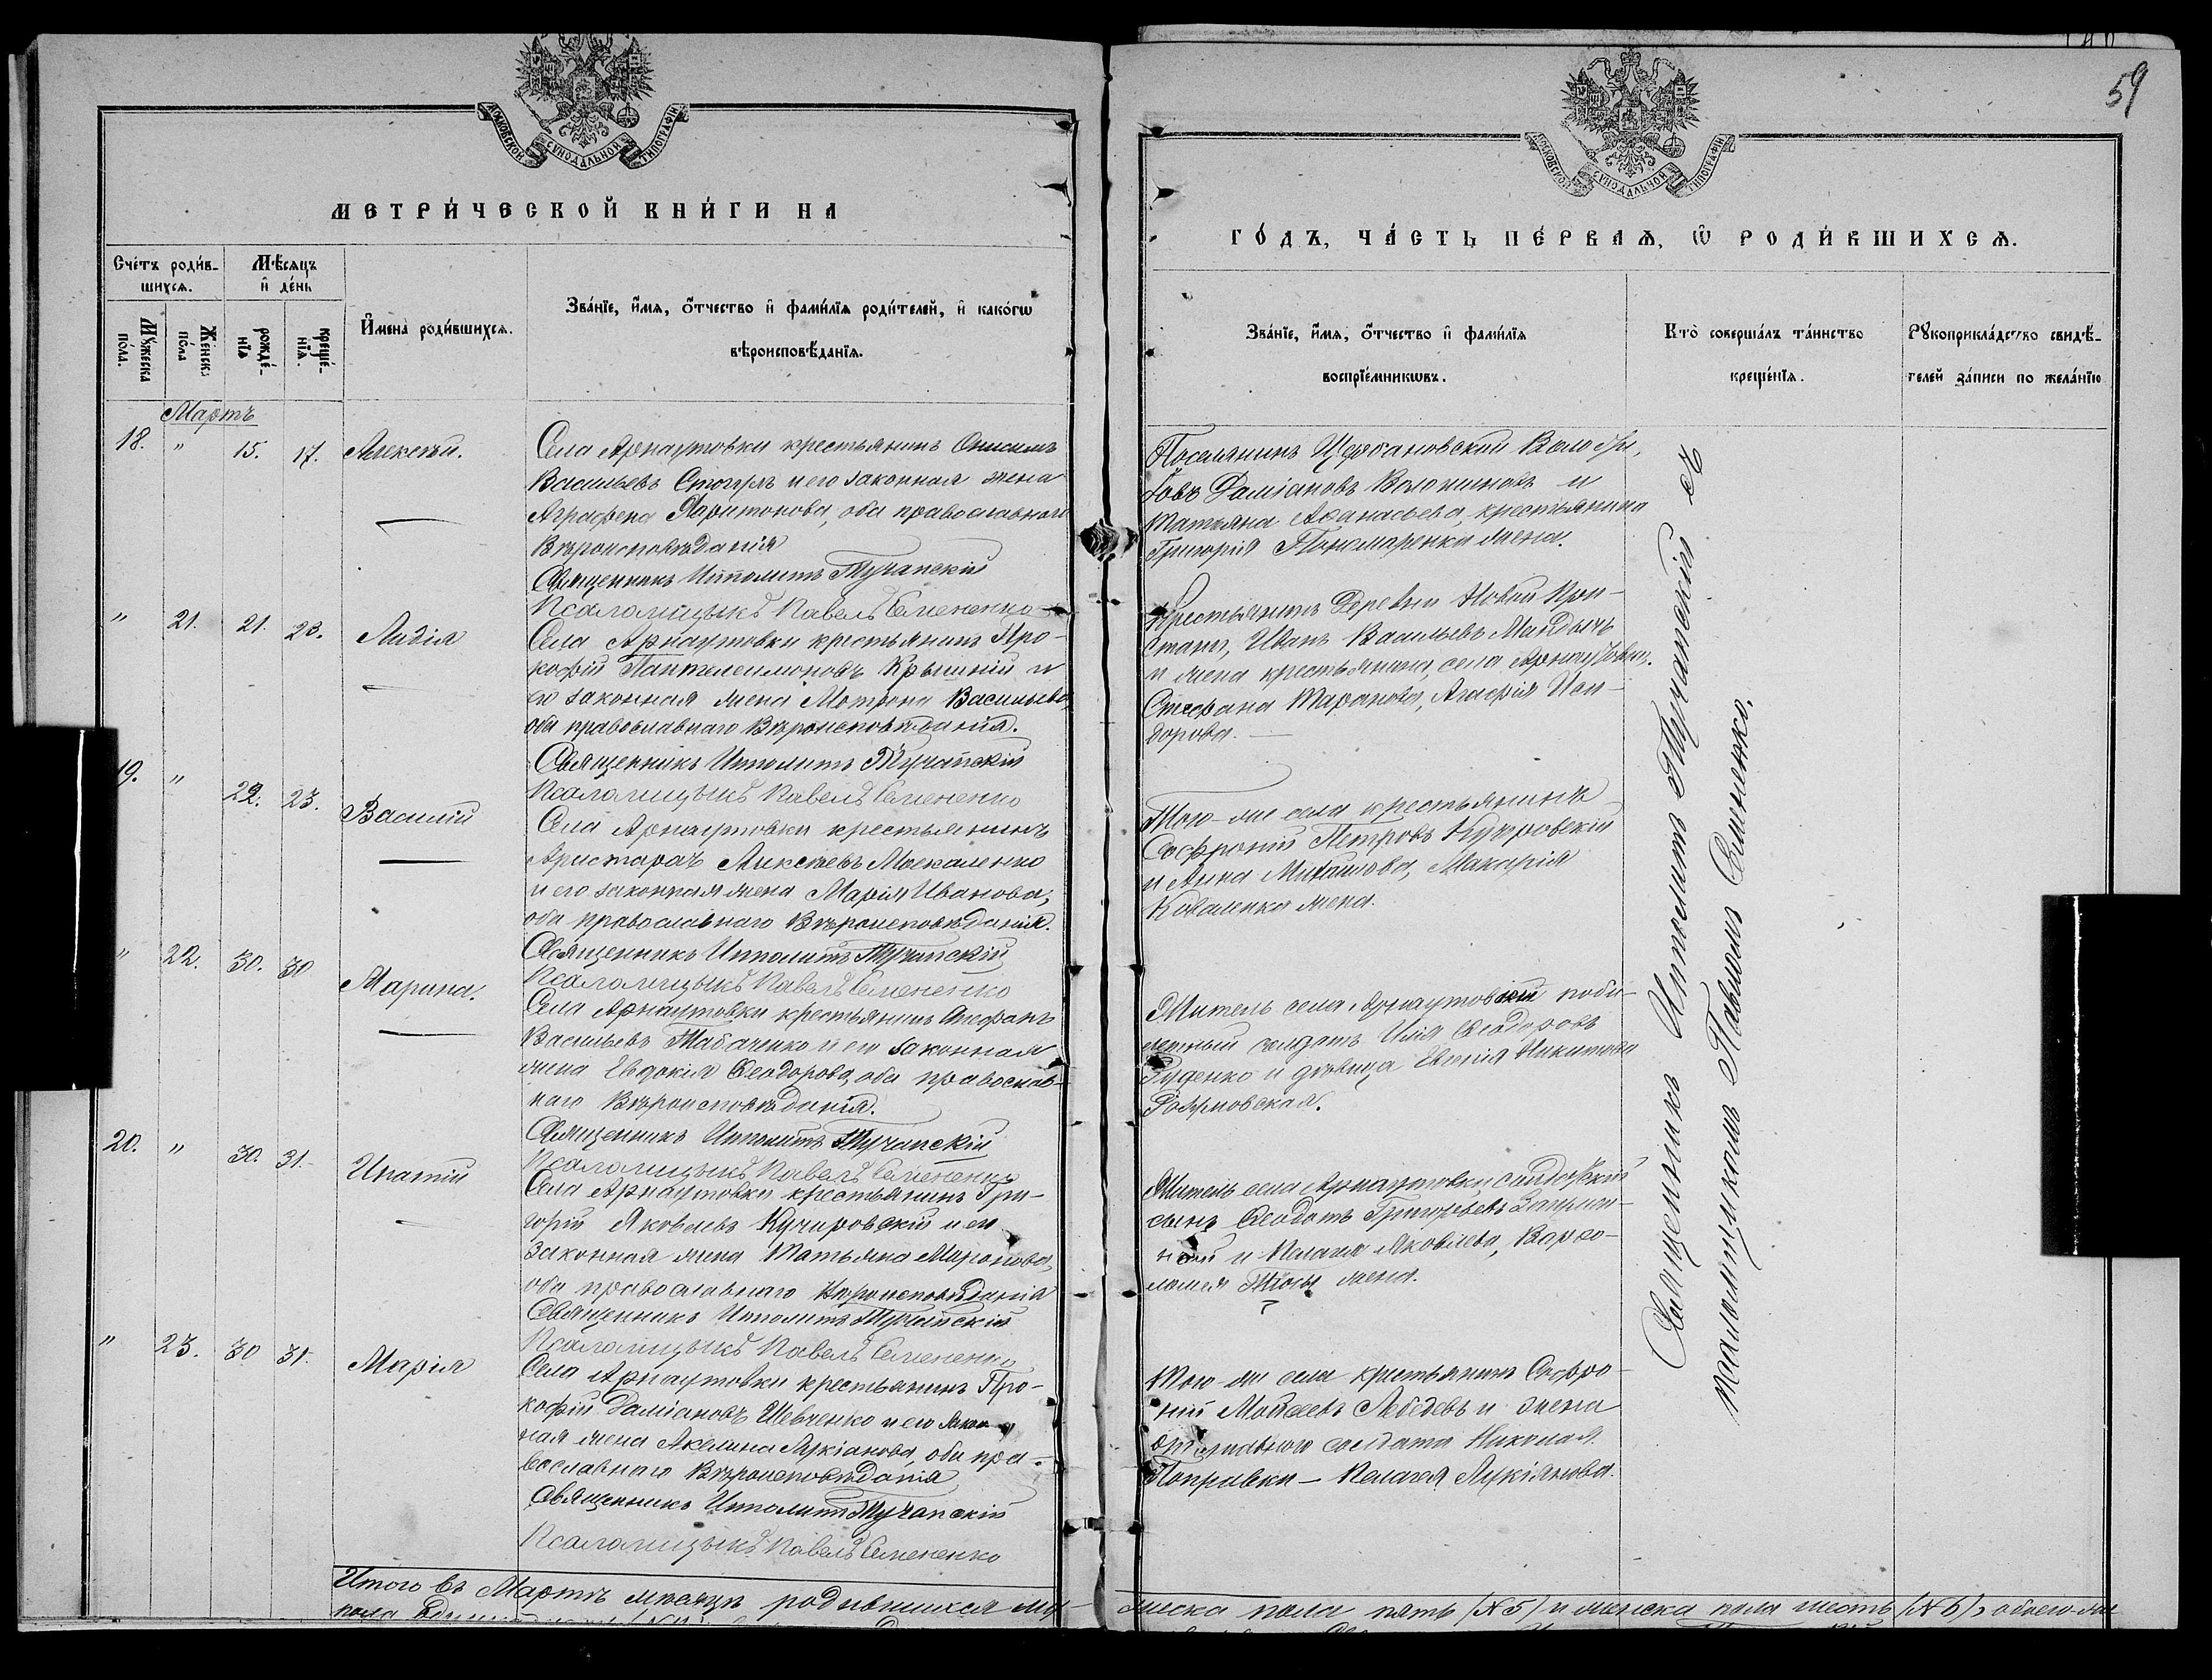 59
МОСКОВСКОЙ СѴНОДАЛЬНОЙ ТИПОГРАФІИ
МОСКОВСКОЙ СѴНОДАЛЬНОЙ ТИПОГРАФІИ
МЕТРИ́ЧЕСКОЙ КНИ́ГИ НА
ГО́ДЪ, ЧА́СТЬ ПЕ́РВАѦ, Ѡ҆ РОДИ́ВШИХСѦ.
Сче́тъ роди́в-
шихсѧ.
Мѣ́сѧцъ
и҆ де́нь
Мꙋ́жеска
по́ла.
Же́нска
по́ла
рожде́-
нїѧ
креще́-
нїѧ.
И҆мена̀ роди́вшихсѧ.
Зва́нїе, и҆́мѧ, ѻ҆́тчество и҆ фами́лїѧ роди́телей, и҆ како́гѡ
вѣроисповѣ́данїѧ.
Зва́нїе, и҆́мѧ, ѻ҆́тчество и҆ фами́лїѧ
воспрїе́мникѡвъ.
Кто̀ соверша́лъ та́инство
креще́нїѧ.
Рꙋкоприкла́дство свидѣ́-
телей за́писи по жела́нїю
Мартъ
18. " 15. 17. Алексѣй.
Села Арнаутовки крестьянинъ Онисимъ
Васильевъ и его законная жена
Аграфена Харитонова, оба православнаго
Вѣроисповѣданія
Священникъ Ипполитъ Тучапскій
Псаломщикъ Павелъ Семененко
Поселянинъ
Даміановъ и
Татьяна Аѳанасьева, крестьянина
Григорія Пономаренка жена.
" 21. 21. 23. Лидія
Села Арнаутовки крестьянинъ Про-
кофій Пантелеимоновъ и
его законная жена Мотрона Васильева,
оба православнаго Вѣроисповѣданія.
Священникъ Ипполитъ Тучапскій
Псаломщикъ Павелъ Семененко
Крестьянинъ Деревни Новой При-
стани, Иванъ Васильевъ
и жена крестьянина, села Арнаутовки,
Стефана Таранова, Агафія Иси-
дорова.
19. " 22. 23. Василій
Села Арнаутовки крестьянинъ
Аристархъ Алексѣевъ Москаленко
и его законная жена Марія Иванова,
оба православнаго Вѣроисповѣданія.
Священникъ Ипполитъ Тучапскій
Псаломщикъ Павелъ Семененко
Того-же села крестьянинъ
Софроній Петровъ
и Анна Михайлова, Макарія
Коваленка жена.
" 22. 30. 30 Марина.
Села Арнаутовки крестьянинъ Стефанъ
Васильевъ Табаченко и его законная
жена Евдокія Ѳеодорова, оба православ-
наго Вѣроисповѣданія.
Священникъ Ипполитъ Тучапскій
Псаломщикъ Павелъ Семененко
Житель села Арнаутовки
солдатъ Илія Ѳеодоровъ
Руденко и дѣвица Никитова
20. " 30. 31. Ипатій
Села Арнаутовки крестьянинъ Гри-
горій Яковлевъ Кучуровскій и его
законная жена Татьяна Миронова,
оба православнаго Вѣроисповѣданія
Священникъ Ипполитъ Тучапскій
Псаломщикъ Павелъ Семененко
Житель села Арнаутовки, солдатскій
сынъ Ѳеодотъ Григорьевъ
и Пелагія Яковлева, Варѳо-
ломея жена.
" 23. 30 31. Марія
Села Арнаутовки крестьянинъ Про-
кофій Даміановъ Шевченко и его закон-
ная жена Акилина Лукіанова, оба пра-
вославнаго Вѣроисповѣданія
Священникъ Ипполитъ Тучапскій
Псаломщикъ Павелъ Семененко
Того-же села крестьянинъ Софро-
ній Моисеевъ Лебедевъ и жена
солдата Николая
Поправки — Пелагея Лукіянова.
Священникъ Ипполитъ Тучапскій съ
псаломщикомъ Павломъ Семененко.
Итого въ Мартѣ мѣсяцѣ родившихся му-
жеска пола пять (№5) и женска пола шесть (№6), обоего-же
пола